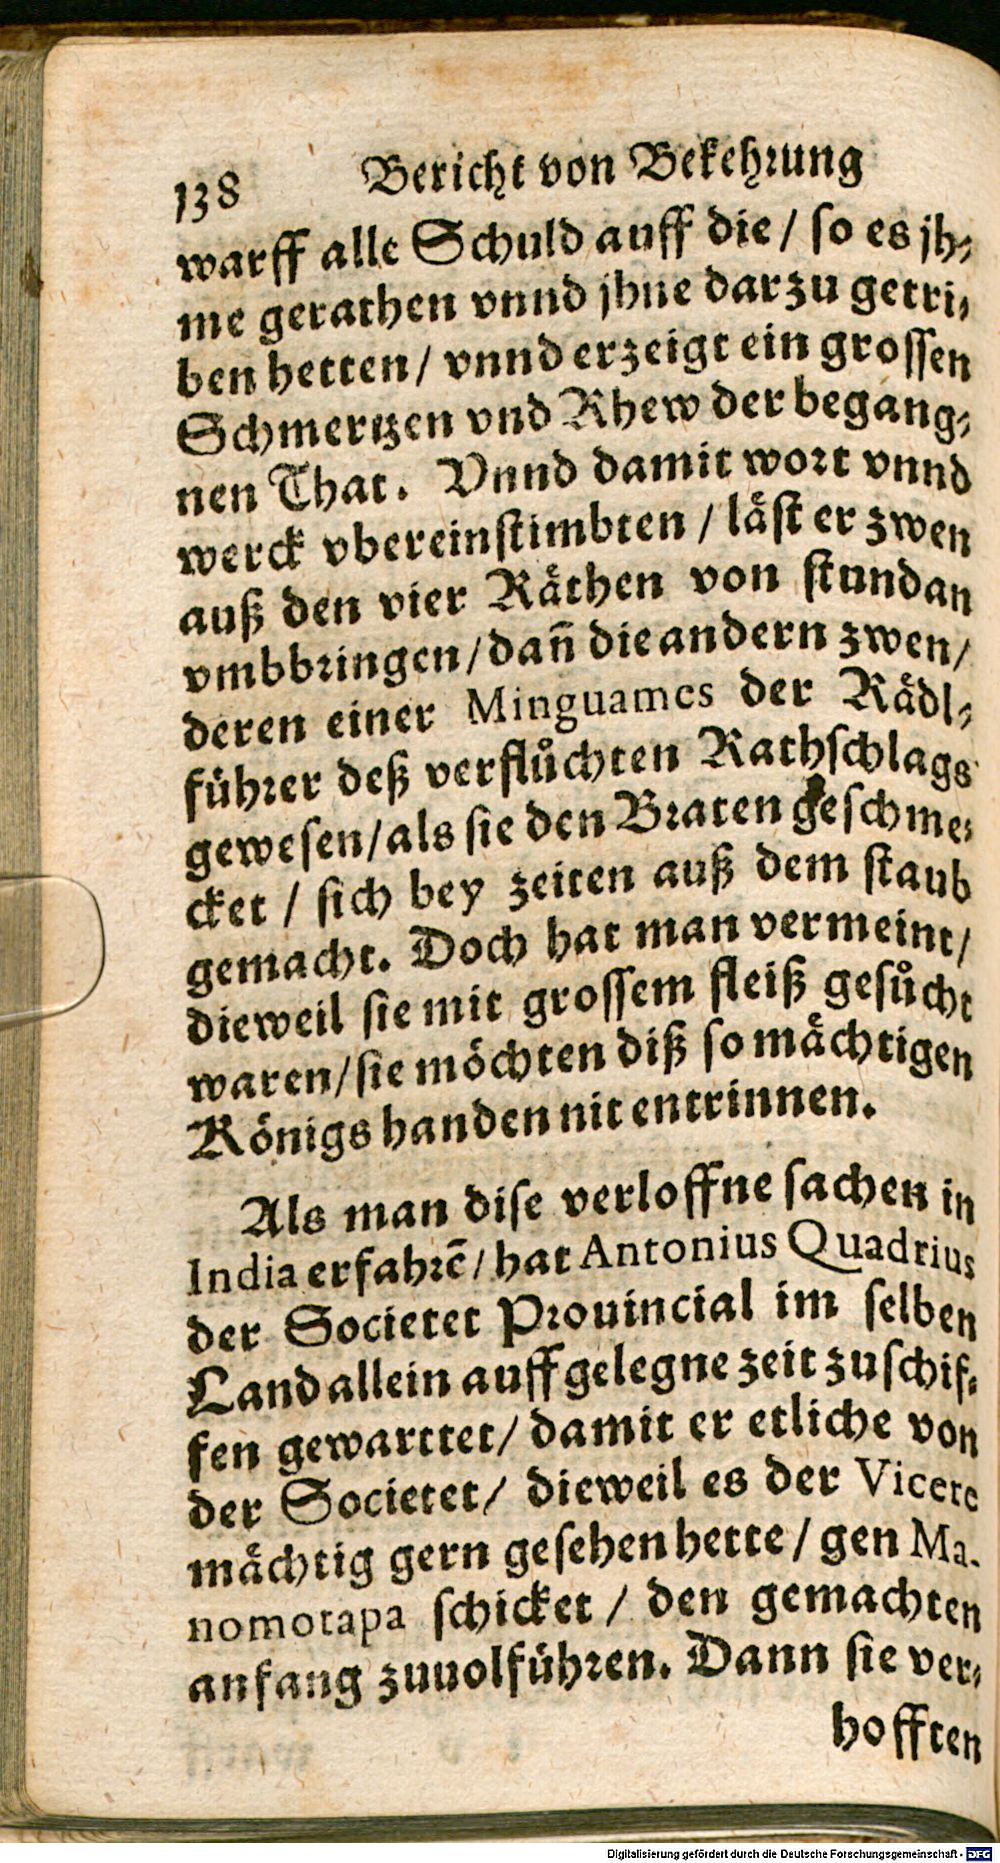 138 Bericht von Bekehrung
warff alle Schuld auff die / so es jh⸗
me gerathen vnnd jhne darzu getri⸗
ben hetten / vnnd erzeigt ein grossen
Schmertzen vnd Rhew der begang⸗
nen That. Vnnd damit wort vnnd
werck vbereinstimbten / läst er zwen
auß den vier Räthen von stundan
vmbbringen / dañ die andern zwen /
deren einer Minguames der Rädl⸗
führer deß verflůchten Rathschlags
gewesen / als sie den Braten geschme⸗
cket / sich bey zeiten auß dem staub
gemacht. Doch hat man vermeint /
dieweil sie mit grossem fleiß gesůcht
waren / sie möchten diß so mächtigen
Königs handen nit entrinnen.
Als man dise verloffne sachen in
India erfahrẽ / hat Antonius Quadrius
der Societet Prouincial im selben
Land allein auff gelegne zeit zuschif⸗
fen gewarttet / damit er etliche von
der Societet / dieweil es der Vicere
mächtig gern gesehen hette / gen Ma-
nomotapa schicket / den gemachten
anfang zuuolführen. Dann sie ver⸗
hofften
Digitalisierung gefördert durch die Deutsche Forschungsgemeinschaft - DFG